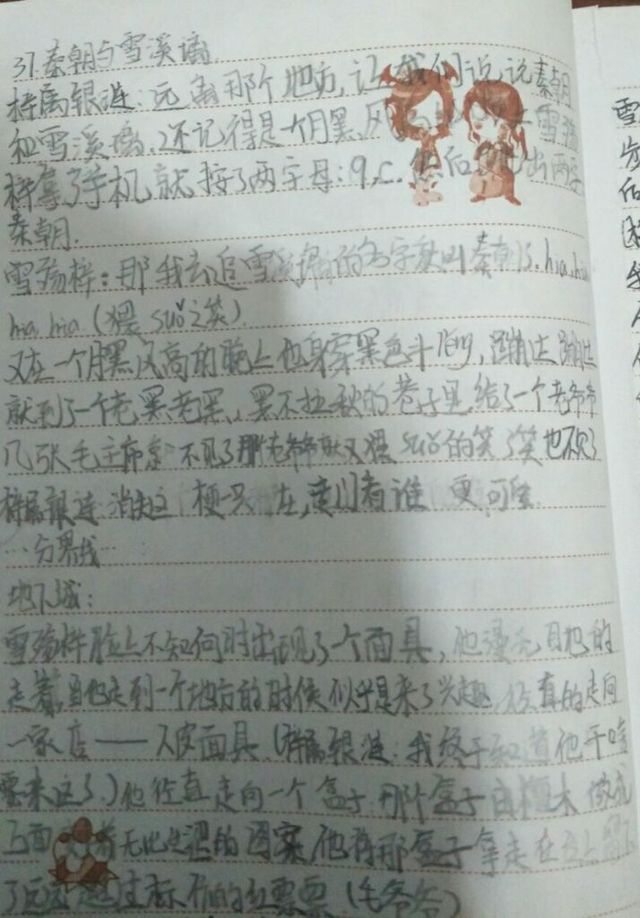 37.秦朝与雪溪漓
梓属银涟:远离那个地方,让我们说说秦朝
和雪溪漓,还记得是一个月黑风高 雪殇
梓拿了手机就按了两字母:q,c.然后 出两字
秦朝.
雪殇梓:那我去追雪溪漓的名字就叫秦朝了.hia.hia
hia hia(猥suo之笑)
又在一个月黑风高的晚上他身穿黑色斗peng,蹓达蹓达
就到了一个老黑老黑、黑不拉秋的巷子里给了一个老爷爷
几张毛主席 不见了那老爷爷 又猥suo的笑了笑也不见了
梓属银涟 这梗只 在,
…分界线…
地下城:
雪殇梓脸上不知何时出现了一个面具,他漫无目地的
走着,当他走到一个地方的时候似乎是来了兴趣,径直的走向
一家店——人皮面具(梓属银涟:我终于知道他干啥
要来这了)他径直走向一个盒子.那个盒子由檀木做成
上面 着无比 的图案,他将那盒子拿走在 上留
了 的红票票(毛爷爷)
雪
步
后